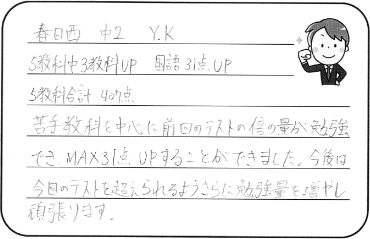 春日西 中2 Y.K
5教科中3教科UP 国語31点UP
5教科合計 407点
苦手教科を中心に前回のテストの倍の量が勉強
でき、MAX31点UPすることができました。今後は
今日のテストを超えられるようさらに勉強量を増やし
頑張ります。